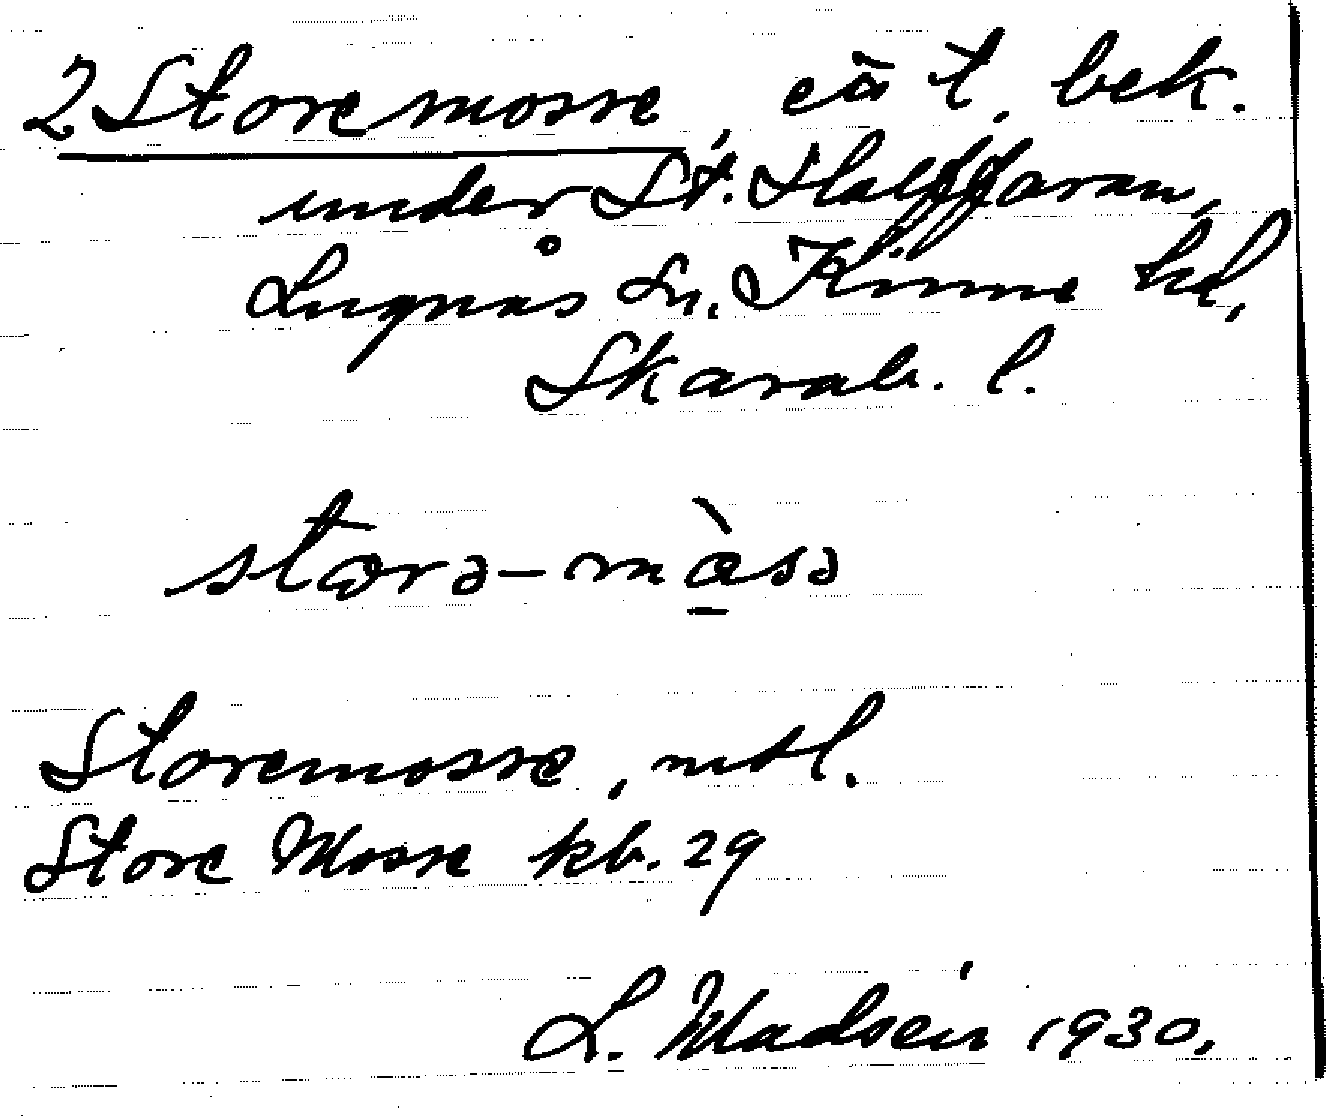 2 Storemosse, eä t. bek.
under St. Stalffaran,
Lugnås sn. Kinne hd,
Skarab. l.
storə-mòsə
Storemosse, mtl.
Store Mosse kb. 29
L. Madsén 1930.